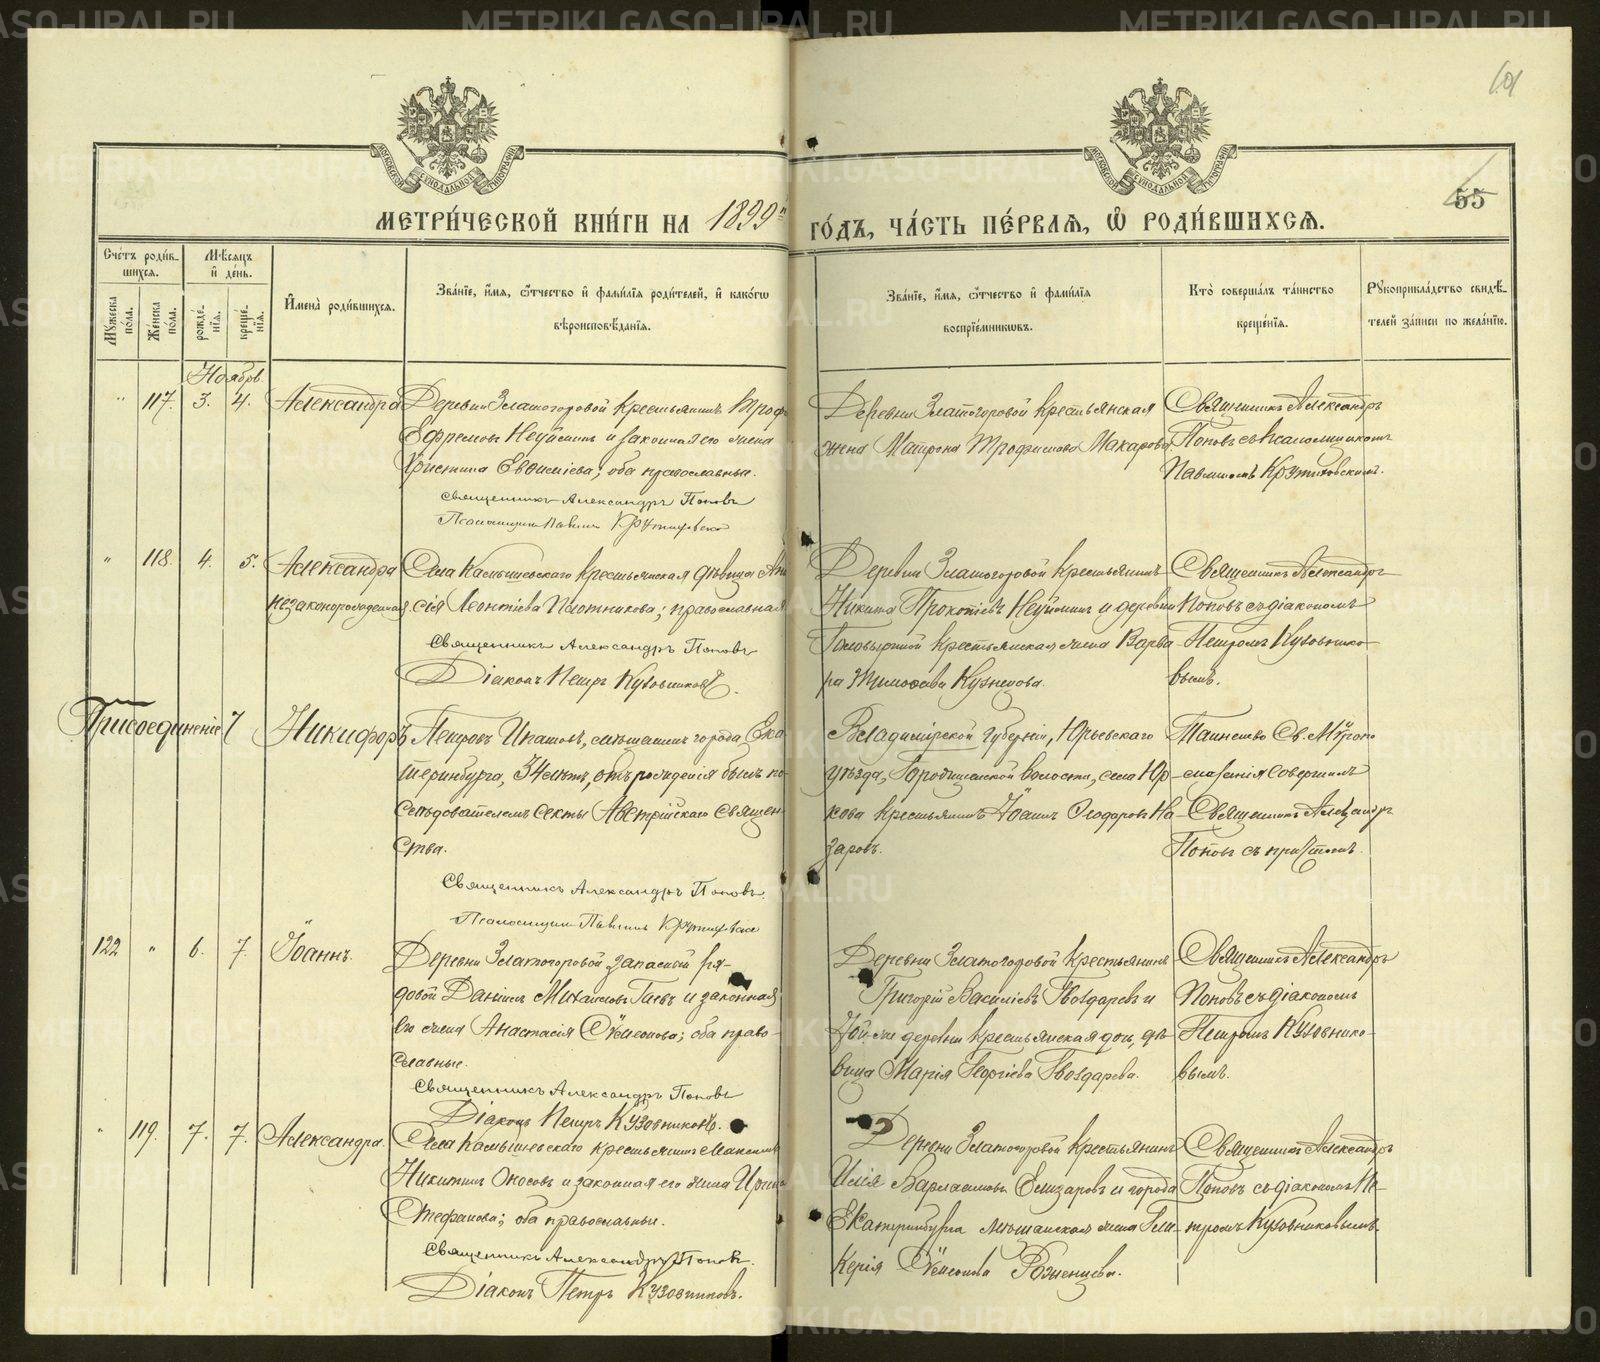 METRIKI.GASO-URAL.RU
101
55
МОСКОВСКОЙ СѴНОДАЛЬНОЙ ТИПОГРАФІИ
МОСКОВСКОЙ СѴНОДАЛЬНОЙ ТИПОГРАФІИ
МЕТРИ́ЧЕСКОЙ КНИ́ГИ НА 1899й ГО́ДЪ, ЧА́СТЬ ПЕ́РВАЯ, Ѡ РОДИ́ВШИХСЯ.
Сче́тъ роди́в-
шихся.
Мѣ́сяцъ
и҆ де́нь.
Мꙋ́жеска по́ла.
Же́нска по́ла.
рожде́-
нїя.
креще́-
нїя.
И҆мена̀ роди́вшихся.
Зва́нїе, и҆́мя, ѻ҆́тчество и҆ фами́лїя роди́телей, и҆ како́гѡ
вѣроисповѣ́данїя.
Зва́нїе, и҆́мя, ѻ҆́тчество и҆ фами́лїя
воспрїе́мникѡвъ.
Кто̀ соверша́лъ та́инство
креще́нїя.
Рꙋкоприкла́дство свидѣ́-
телей за́писи по жела́нїю.
Ноябрь
" 117. 3. 4. Александра
Деревни Златогоровой крестьянинъ Троф
Ефремовъ Неуйминъ и законная его жена
Христина Евѳиміева; оба православные.
Священникъ Александръ Поповъ
Псаломщикъ Павлинъ Крутиховскій
Деревни Златогоровой крестьянская
жена Матрона Трофимова Макарова.
Священникъ Александръ
Поповъ съ псаломщикомъ
Павлиномъ Крутиховскимъ.
" 118. 4. 5. Александра
незаконорожденная
Села Камышевскаго крестьянская дѣвица Ани
сія Леонтіева Плотникова; православная
Священникъ Александръ Поповъ
Діаконъ Петръ Кузовниковъ.
Деревни Златогоровой крестьянинъ
Никита Прокопіевъ Неуйминъ и деревни
Головыриной крестьянская жена Варва-
ра Тимоѳеева Кузнецова.
Священникъ Александръ
Поповъ съ діакономъ
Петромъ Кузовнико-
вымъ.
Присоединеніе 7 Никифоръ
Петровъ Игнатовъ, мѣщанинъ города Ека
теринбурга, 34 лѣтъ, отъ рожденія былъ по-
слѣдователемъ секты Австрійскаго Священ-
ства.
Священникъ Александръ Поповъ.
Псаломщикъ Павлинъ Крутиховскій
Владимірской губерніи, Юрьевскаго
уѣзда, Городищенской волости, села Юр-
кова крестьянинъ Іоаннъ Ѳеодоровъ На-
заровъ.
Таинство Св. Мѵропо
мазанія совершилъ
Священникъ Александръ
Поповъ съ причтомъ.
122 " 6. 7. Іоаннъ.
Деревни Златогоровой запасной ря-
довой Даніилъ Михаиловъ Гаевъ и законная
его жена Анастасія Сѵмеонова; оба право-
славные.
Священникъ Александръ Поповъ
Діаконъ Петръ Кузовниковъ.
Деревни Златогоровой крестьянинъ
Григорій Василіевъ Гвоздаревъ и
той-же деревни крестьянская дочь, дѣ-
вица Марія Георгіева Гвоздарева.
Священникъ Александръ
Поповъ съ діакономъ
Петромъ Кузовнико-
вымъ.
" 119. 7. 7. Александра.
Села Камышевскаго крестьянинъ Максимъ
Никитинъ Оносовъ и законная его жена Ирина
Стефанова; оба православные.
Священникъ Александръ Поповъ.
Діаконъ Петръ Кузовниковъ.
Деревни Златогоровой крестьянинъ
Илія Варлаамовъ Елизаровъ и города
Екатеринбурга мѣщанская жена Гли-
керія Сѵмеонова Роженцева.
Священникъ Александръ
Поповъ съ діакономъ Пе-
тромъ Кузовниковымъ.